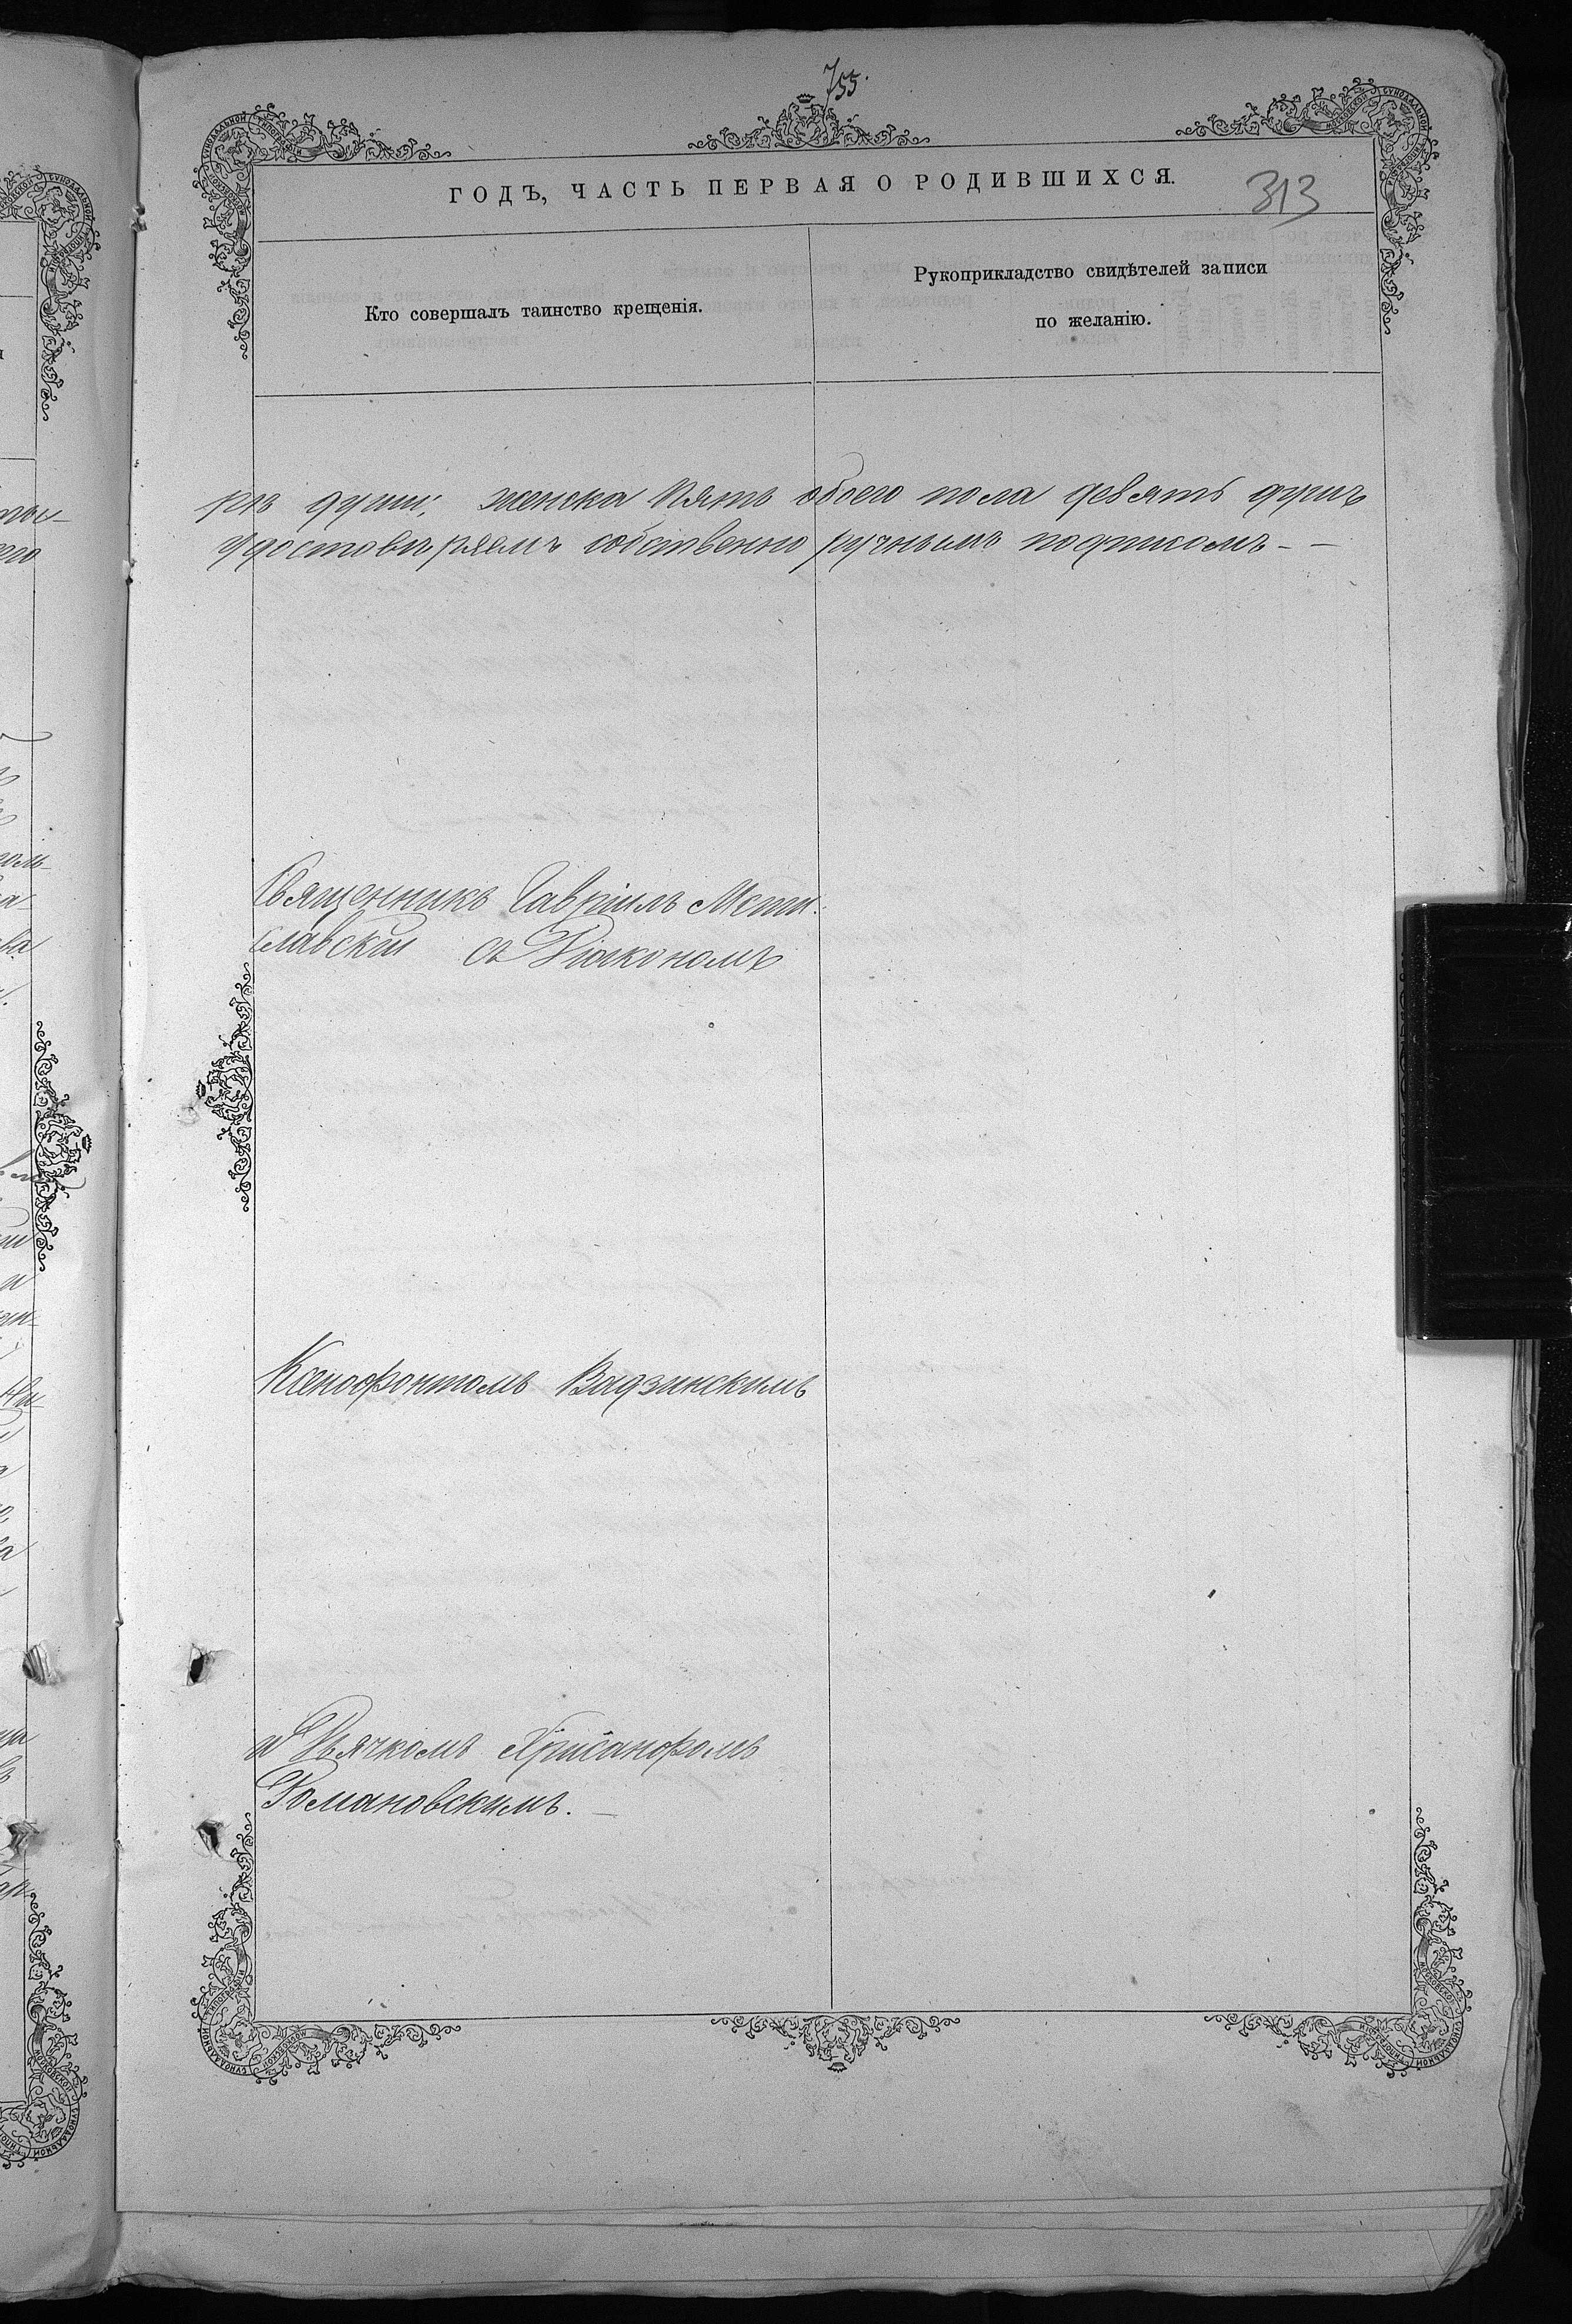 755.
ГОДЪ, ЧАСТЬ ПЕРВАЯ О РОДИВШИХСЯ.
313
Кто совершалъ таинство крещенія.
Рукоприкладство свидѣтелей записи
по желанію.
ре души; женска пять обоего пола девять душъ
удостовѣряемъ собственно ручнымъ подписомъ - -
Священникъ Гавріилъ Мсти-
славскій съ Діакономъ
Ксенофонтомъ Вадзинскимъ
и Дьячкомъ Хрисанфомъ
Романовскимъ. -